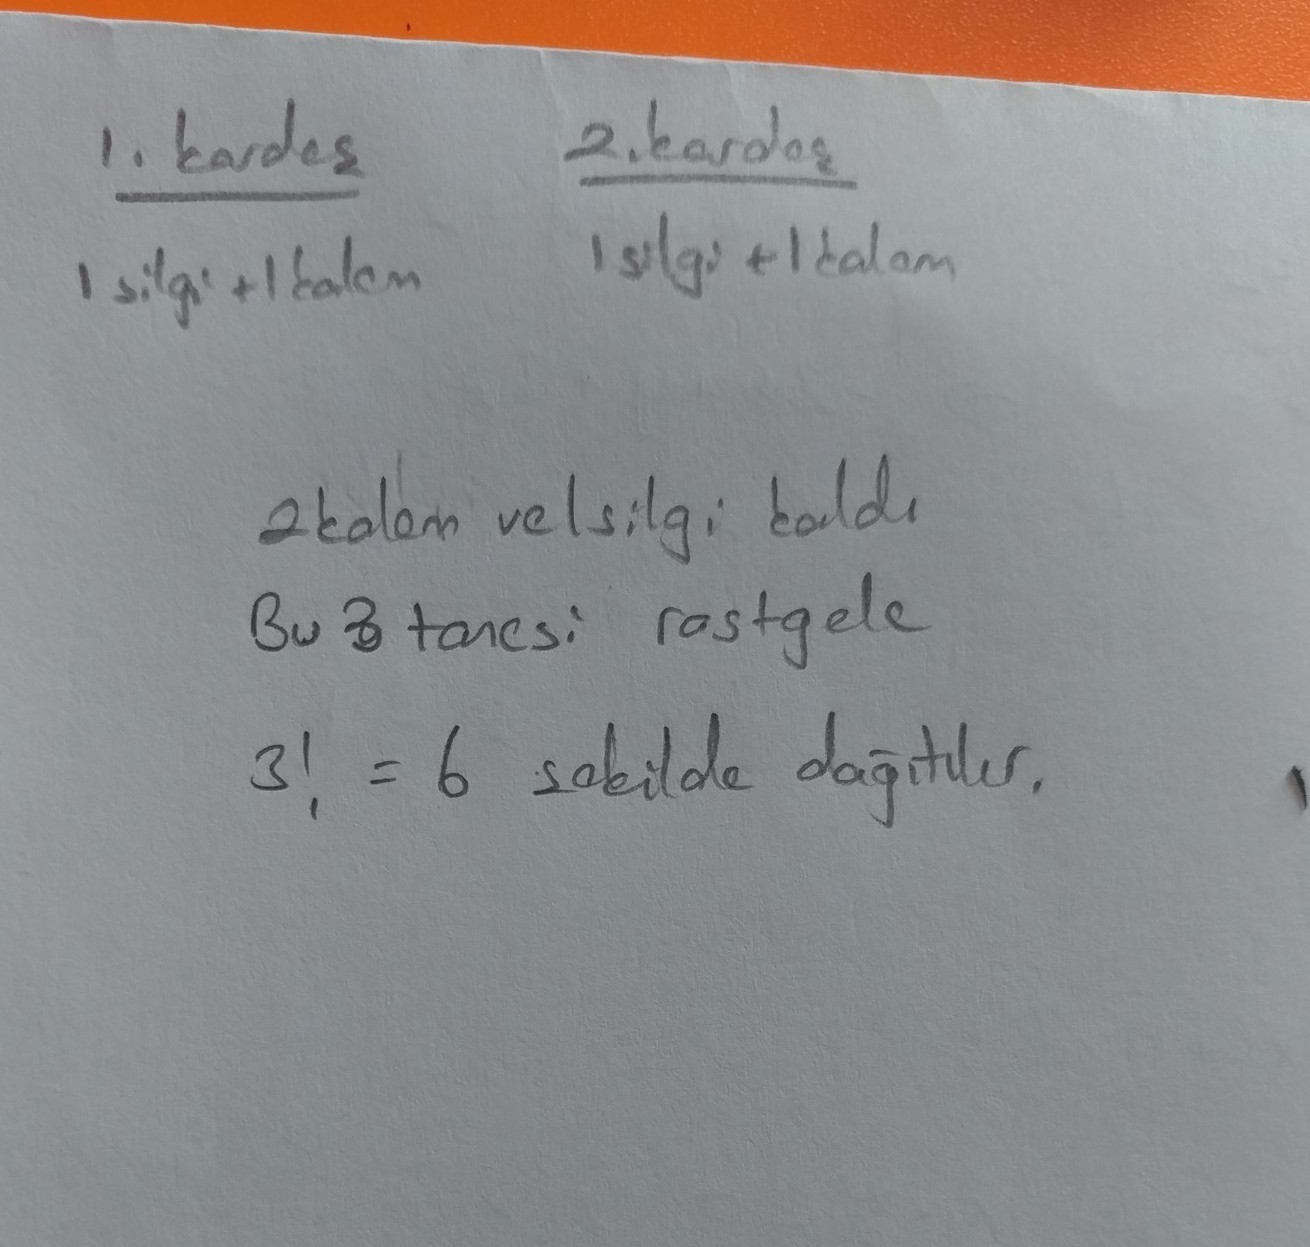 1. kardeş
2. kardeş
1 silgi + 1 kalem
1 silgi + 1 kalem
2 kalem ve 1 silgi kaldı
Bu 3 tanesi rastgele
3! = 6 şekilde dağıtılır.